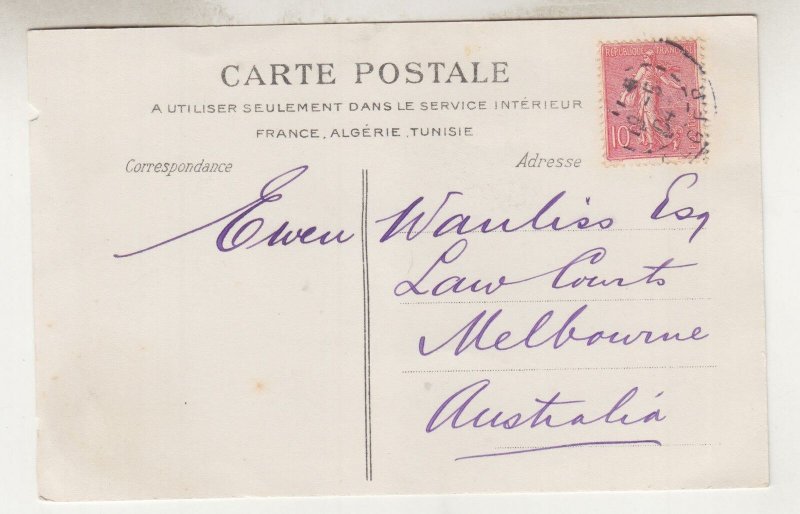 CARTE POSTALE
A UTILISER SEULEMENT DANS LE SERVICE INTÉRIEUR
FRANCE, ALGÉRIE, TUNISIE
Correspondance
Adresse
REPUBLIQUE FRANÇAISE
10
04
Ewen Wanliss Esq
Law Courts
Melbourne
Australia